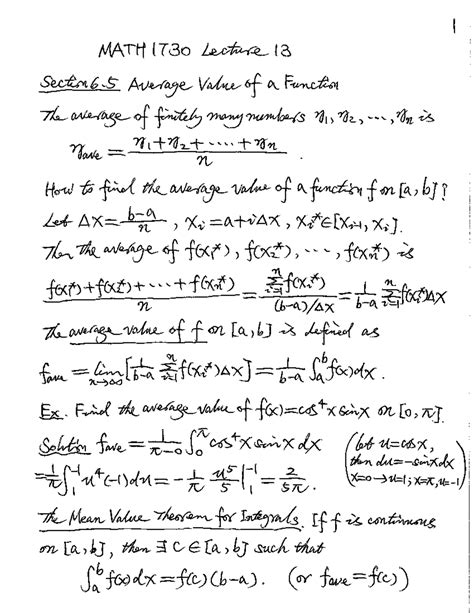 1
MATH 1730 Lecture 13
Section 6.5 Average Value of a Function
The average of finitely many numbers y₁, y₂, ⋯, yₙ is
y_ave = (y₁+y₂+⋯⋯+yₙ)/n .
How to find the average value of a function f on [a,b]?
Let ΔX = (b-a)/n , Xᵢ = a+iΔX , Xᵢ* ∈ [Xᵢ₋₁, Xᵢ].
Then the average of f(X₁*), f(X₂*), ⋯, f(Xₙ*) is
(f(X₁*)+f(X₂*)+⋯+f(Xₙ*))/n = (∑ᵢ₌₁ⁿ f(Xᵢ*))/((b-a)/ΔX) = 1/(b-a) ∑ᵢ₌₁ⁿ f(Xᵢ*)ΔX
The average value of f on [a,b] is defined as
f_ave = lim_{n→∞} [1/(b-a) ∑ᵢ₌₁ⁿ f(Xᵢ*)ΔX] = 1/(b-a) ∫ₐᵇ f(x)dx .
Ex. Find the average value of f(x)=cos⁴x sinx on [0,π].
Solution f_ave = 1/(π-0) ∫₀^π cos⁴x sinx dx (let u=cosx,
then du=-sinx dx
= 1/π ∫₁⁻¹ u⁴(-1)du = -1/π u⁵/5 |₁⁻¹ = 2/(5π) . x=0→u=1; x=π, u=-1)
The Mean Value Theorem for Integrals. If f is continuous
on [a,b], then ∃ C ∈ [a,b] such that
∫ₐᵇ f(x)dx = f(c)(b-a). (or f_ave = f(c))